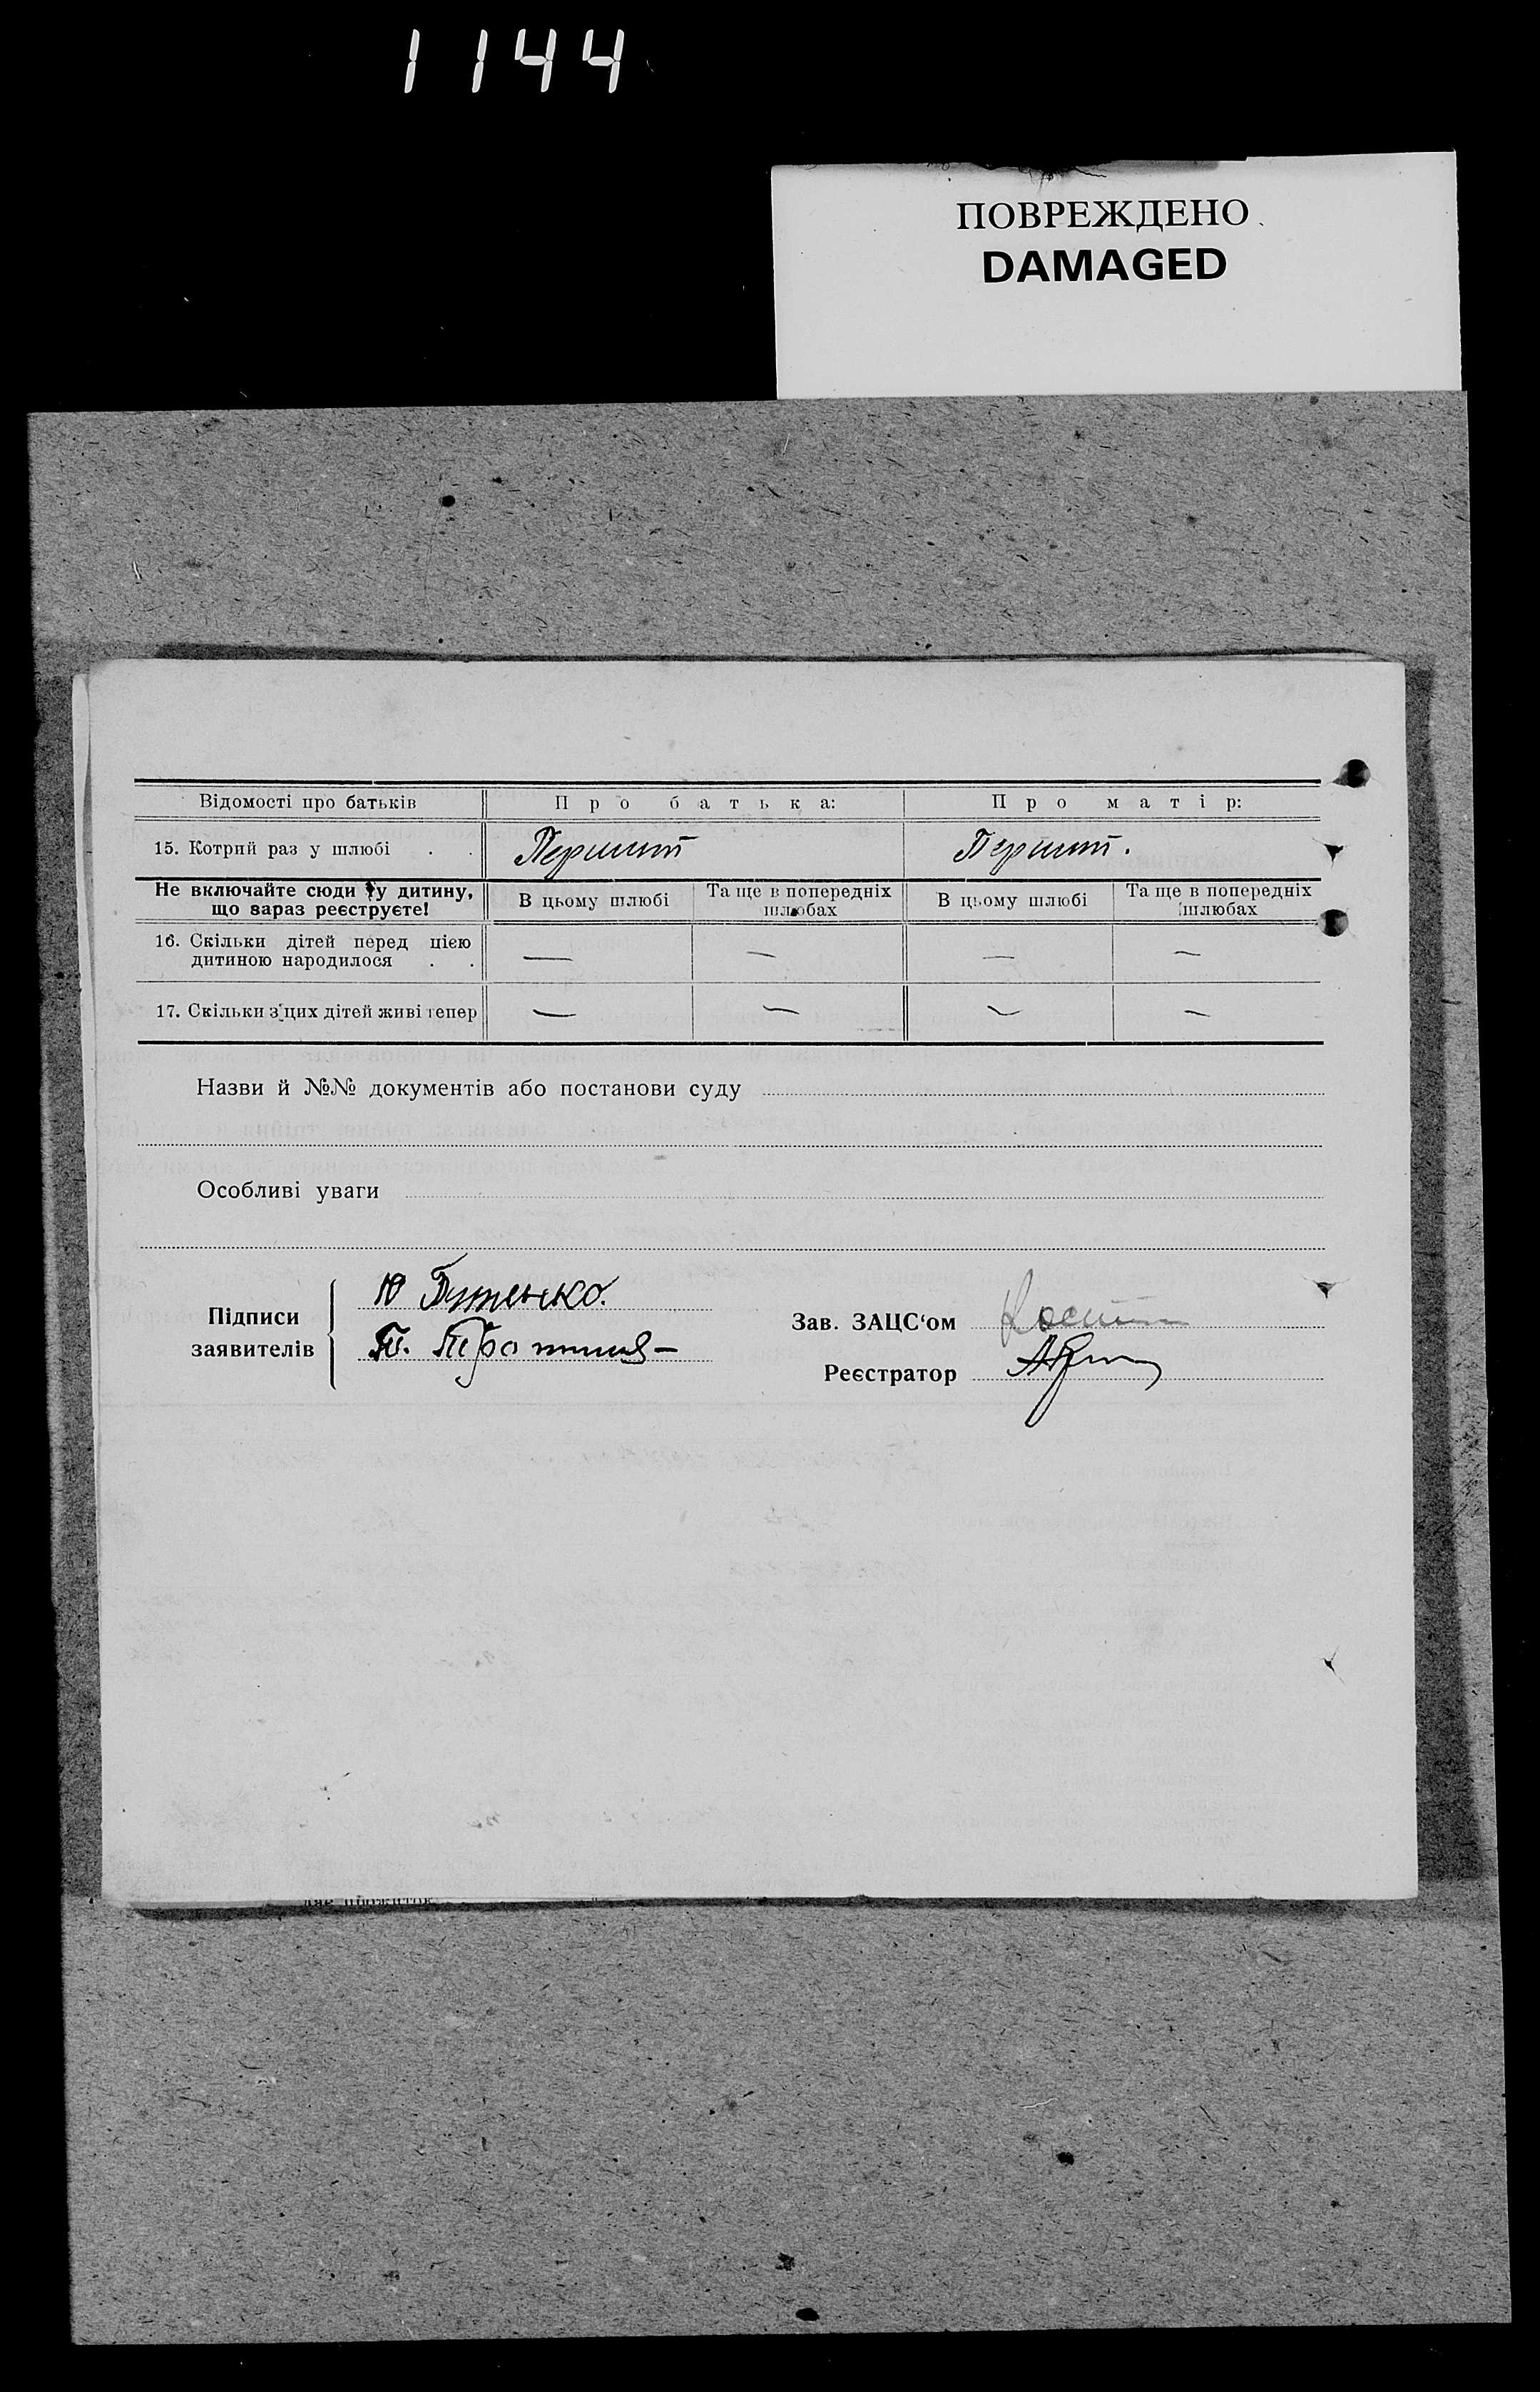 1144
ПОВРЕЖДЕНО
DAMAGED
Відомості про батьків
Про батька:
Про матір:
15. Котрий раз у шлюбі . .
Перший
Перший.
Не включайте сюди ту дитину,
що зараз реєструєте!
В цьому шлюбі
Та ще в попередніх
шлюбах
В цьому шлюбі
Та ще в попередніх
шлюбах
16. Скільки дітей перед цією
дитиною народилося . .
— — — —
17. Скільки з цих дітей живі тепер
— — — —
Назви й №№ документів або постанови суду
Особливі уваги
Підписи
заявителів
Ю Бутенко.
Зав. ЗАЦС‘ом
Реєстратор